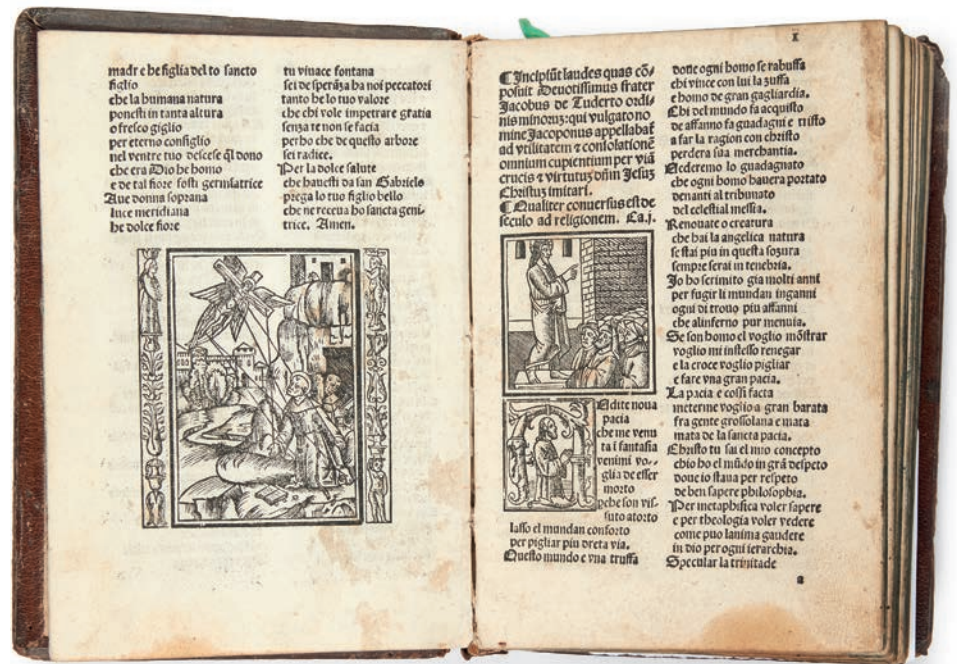 madr e he figlia del to sancto
figlio
che la humana natura
ponesti in tanta altura
o fresco giglio
per eterno consiglio
nel ventre tuo descese q̃l dono
che era Dio he homo
e de tal fiore fosti germinatrice
Aue donna soprana
luce meridiana
he dolce fiore
tu viuace fontana
sei de sperãza ha noi peccatori
tanto he lo tuo valore
che chi vole impetrare gratia
senza te non se facia
perho che de questo arbore
sei radice.
Per la dolce salute
che hauesti da san Gabriele
prega lo tuo figlio bello
che ne receua ho sancta geni-
trice. Amen.
I
¶ Incipiũt laudes quas cõ-
posuit deuotissimus frater
Jacobus de Tuderto ordi-
nis minoruꝫ: qui vulgato no
mine Jacoponus appellabat̃
ad vtilitatem ⁊ consolationẽ
omnium cupientium per viã
crucis ⁊ virtutuꝫ dñm Jesuꝫ
Christuꝫ imitari.
¶ Qualiter conuersus est de
seculo ad religionem. Ca.j.
Udite noua
pacia
che me venu
ta i fantasia
venimi vo-
glia de esser
morto
ꝑche son vis-
suto atorto
lasso el mundan conforto
per pigliar piu dreta via.
Questo mundo e vna truffa
doue ogni homo se rabuffa
chi vince con lui la zuffa
e homo de gran gagliardia.
Chi del mundo fa acquisto
de affanno fa guadagni e tristo
a far la ragion con christo
perdera sua merchantia.
Vederemo lo guadagnato
che ogni homo hauera portato
denanti al tribunato
del celestial messia.
Renouate o creatura
che hai la angelica natura
se stai piu in questa sozura
sempre serai in tenebria.
Jo ho scrimito gia molti anni
per fugir li mundan inganni
ogni di trouo piu affanni
che alinferno pur menuia.
Se son homo el voglio mõstrar
voglio mi instesso renegar
e la croce voglio pigliar
e fare vna gran pacia.
La pacia e cossi facta
meterme voglio a gran barata
fra gente grossolana e mata
mata de la sancta pacia.
Christo tu sai el mio concepto
chio ho el mũdo in grã despeto
doue io staua per respeto
de ben sapere philosophia.
Per metaphisica voler sapere
e per theologia voler vedere
come puo lanima gaudere
in dio per ogni ierarchia.
Specular la trinitade
a